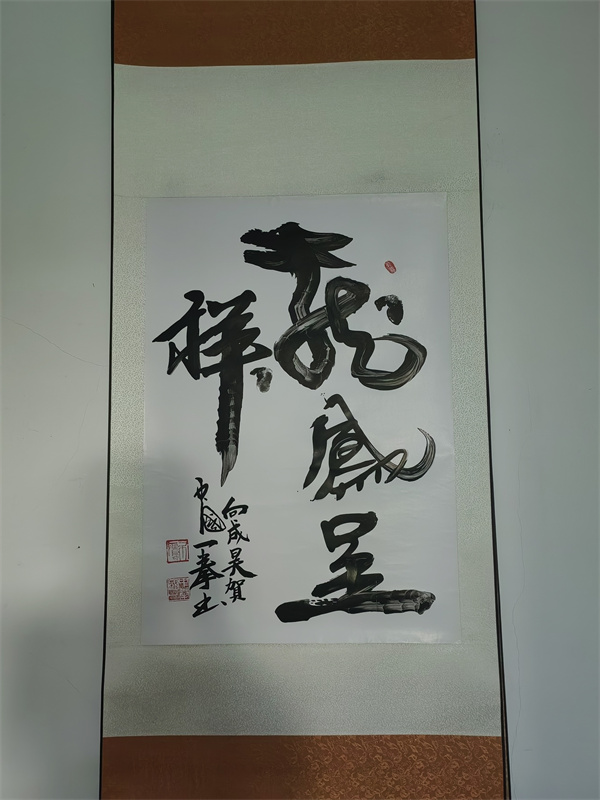 龍鳳呈
祥
向成昊賀
中國一拳书